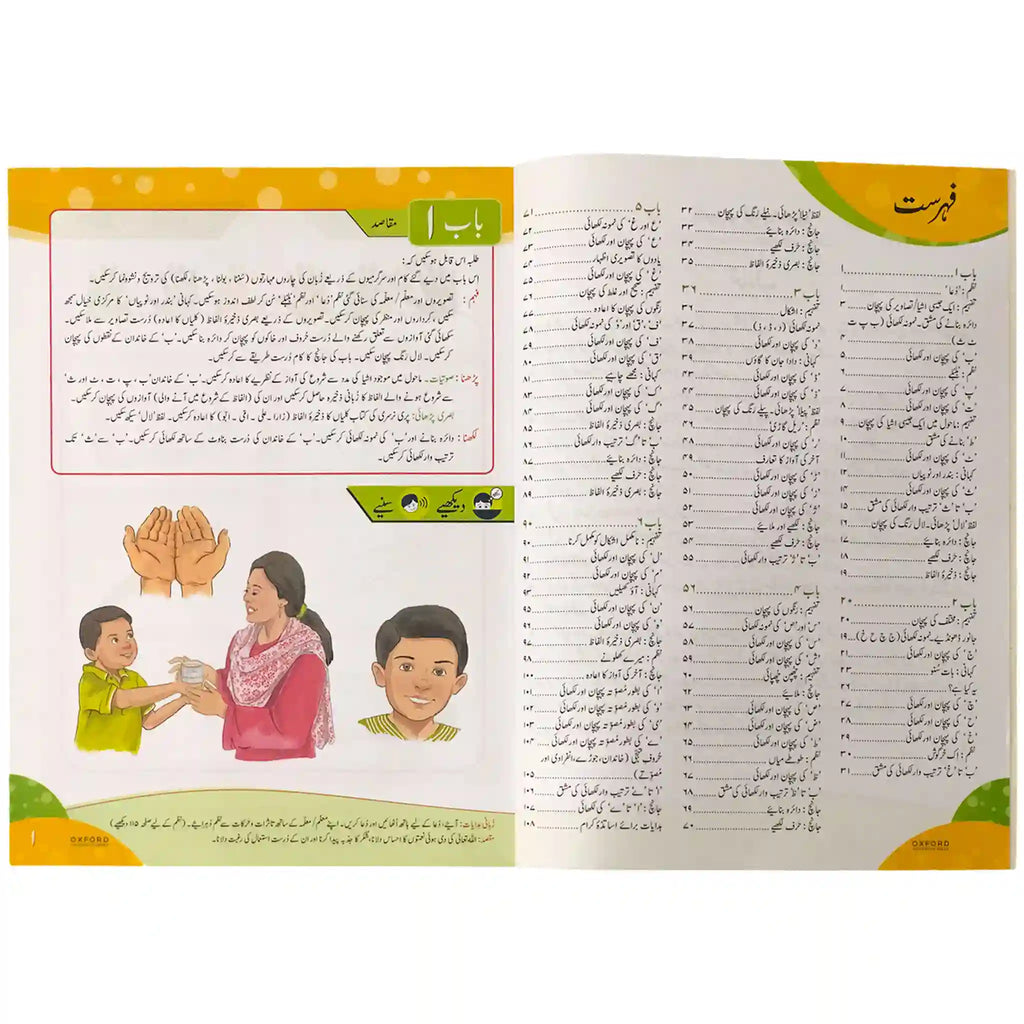 فہرست
باب ۱ ........ ۱
نظم: 'دُعا' ........ ۱
تفہیم: ایک جیسی اشیا/تصاویر کی پہچان ........ ۳
دائرہ بنانے کی مشق۔ نمونہ لکھائی (ب پ ت
ٹ ث) ........ ۴
'ب' کی پہچان اور لکھائی ........ ۵
نظم: بُلبُلے ........ ۶
'پ' کی پہچان اور لکھائی ........ ۷
'ت' کی پہچان اور لکھائی ........ ۸
تفہیم: ماحول میں ایک جیسی اشیا کی پہچان ........ ۹
'ط' بنانے کی مشق ........ ۱۰
'ٹ' کی پہچان اور لکھائی ........ ۱۱
کہانی: بندر اور ٹوپیاں ........ ۱۲
'ث' کی پہچان اور لکھائی ........ ۱۴
'ب' تا 'ث' ترتیب وار لکھائی کی مشق ........ ۱۵
لفظ 'لال' پڑھائی۔ لال رنگ کی پہچان ........ ۱۶
جانچ: دائرہ بنائیے ........ ۱۷
جانچ: حرف لکھیے ........ ۱۸
جانچ: ذخیرۂ الفاظ ........ ۱۹
باب ۲ ........ ۲۰
تفہیم: مختلف کی پہچان ........ ۲۰
جانور ڈھونڈیے۔ نمونہ لکھائی (ج چ ح خ) ... ۱۹
'ج' کی پہچان اور لکھائی ........ ۲۱
کہانی: بات سُنو ........ ۲۳
یہ کیا ہے؟ ........ ۲۶
'چ' کی پہچان اور لکھائی ........ ۲۷
'ح' کی پہچان اور لکھائی ........ ۲۸
'خ' کی پہچان اور لکھائی ........ ۲۹
نظم: اک خرگوش ........ ۳۰
'ب' تا 'خ' ترتیب وار لکھائی کی مشق ........ ۳۱
لفظ 'نیلا' پڑھائی۔ نیلے رنگ کی پہچان ........ ۳۲
جانچ: دائرہ بنائیے ........ ۳۳
جانچ: حرف لکھیے ........ ۳۴
جانچ: بصری ذخیرۂ الفاظ ........ ۳۵
باب ۳ ........ ۳۶
تفہیم: اشکال ........ ۳۶
نمونہ لکھائی (د، ڈ، ذ) ........ ۳۷
'د' کی پہچان اور لکھائی ........ ۳۸
کہانی: دادا جان کا گاؤں ........ ۳۹
'ڈ' کی پہچان اور لکھائی ........ ۴۳
'ذ' کی پہچان اور لکھائی ........ ۴۴
لفظ 'پیلا' پڑھائی۔ پیلے رنگ کی پہچان ........ ۴۵
نظم: 'ریل گاڑی' ........ ۴۶
'ر' کی پہچان اور لکھائی ........ ۴۸
آخر کی آواز کا تعارف ........ ۴۹
'ڑ' کی پہچان اور لکھائی ........ ۵۰
'ز' کی پہچان اور لکھائی ........ ۵۱
'ژ' کی پہچان اور لکھائی ........ ۵۲
جانچ: لکھیے اور ملائیے ........ ۵۳
جانچ: حرف لکھیے ........ ۵۴
'ب' تا 'ژ' ترتیب وار لکھائی ........ ۵۵
باب ۴ ........ ۵۶
تفہیم: رنگوں کی پہچان ........ ۵۶
'س' اور 'ص' کی نمونہ لکھائی ........ ۵۷
'س' کی پہچان اور لکھائی ........ ۵۸
'ش' کی پہچان اور لکھائی ........ ۵۹
تفہیم: چھپن چھپائی ........ ۶۰
جانچ: ملائیے ........ ۶۲
'ص' کی پہچان اور لکھائی ........ ۶۳
'ض' کی پہچان اور لکھائی ........ ۶۴
'ط' کی پہچان اور لکھائی ........ ۶۵
نظم: طوطے میاں ........ ۶۶
'ظ' کی پہچان اور لکھائی ........ ۶۷
'ب' تا 'ظ' ترتیب وار لکھائی کی مشق ........ ۶۸
جانچ: دائرہ بنائیے ........ ۶۹
جانچ: حرف لکھیے ........ ۷۰
باب ۵ ........ ۷۱
'ع' اور 'غ' کی نمونہ لکھائی ........ ۷۲
'ع' کی پہچان اور لکھائی ........ ۷۳
یادوں کا تصویری اظہار ........ ۷۴
'غ' کی پہچان اور لکھائی ........ ۷۵
تفہیم: صحیح اور غلط کی پہچان ........ ۷۶
رنگوں کی پہچان کا اعادہ ........ ۷۷
'ف'، 'ق' اور 'و' کی نمونہ لکھائی ........ ۷۸
'ف' کی پہچان اور لکھائی ........ ۷۹
'ق' کی پہچان اور لکھائی ........ ۸۰
کہانی: مجھے چاہیے ........ ۸۱
'ک' کی پہچان اور لکھائی ........ ۸۳
'گ' کی پہچان اور لکھائی ........ ۸۴
جانچ: بصری ذخیرۂ الفاظ ........ ۸۵
'ب' تا 'گ' ترتیب وار لکھائی ........ ۸۶
جانچ: دائرہ بنائیے ........ ۸۷
جانچ: حرف لکھیے ........ ۸۸
جانچ: بصری ذخیرۂ الفاظ ........ ۸۹
باب ۶ ........ ۹۰
تفہیم: نامکمل اشکال کو مکمل کرنا ........ ۹۰
'ل' کی پہچان اور لکھائی ........ ۹۱
'م' کی پہچان اور لکھائی ........ ۹۲
کہانی: آؤ کھیلیں ........ ۹۳
'ن' کی پہچان اور لکھائی ........ ۹۵
'و' کی پہچان اور لکھائی ........ ۹۶
جانچ: بصری ذخیرۂ الفاظ ........ ۹۷
نظم: میرے کھلونے ........ ۹۸
جانچ: آخر کی آواز کا اعادہ ........ ۱۰۰
'ا' کی بطور مُصوّتہ پہچان اور لکھائی ........ ۱۰۱
'و' کی بطور مُصوّتہ پہچان اور لکھائی ........ ۱۰۲
'ی' کی بطور مُصوّتہ پہچان اور لکھائی ........ ۱۰۳
'ے' کی بطور مُصوّتہ پہچان اور لکھائی ........ ۱۰۴
حروفِ تہجی (خاندان، جوڑے، انفرادی اور
مُصوّتے) ........ ۱۰۵
'ا' تا 'ے' ترتیب وار لکھائی کی مشق ........ ۱۰۶
جانچ: 'ا' تا 'ے' کی لکھائی ........ ۱۰۷
ہدایات برائے اساتذۂ کرام ........ ۱۰۸
OXFORD
باب ۱
مقاصد
طلبہ اس قابل ہوسکیں کہ:
اس باب میں دیے گئے کام اور سرگرمیوں کے ذریعے زبان کی چاروں مہارتوں (سننا، بولنا، پڑھنا، لکھنا) کی ترویج و نشوونما کرسکیں۔
فہم: تصویروں اور معلّم/ معلّمہ کی سنائی گئی نظم 'دُعا' اور نظم 'بُلبُلے' سُن کر لطف اندوز ہوسکیں۔ کہانی 'بندر اور ٹوپیاں' کا مرکزی خیال سمجھ
سکیں، کرداروں اور منظر کی پہچان کرسکیں۔ تصویروں کے ذریعے بصری ذخیرۂ الفاظ (کلیاں کا اعادہ) دُرست تصاویر سے ملا سکیں۔
سکھائی گئی آوازوں سے تعلق رکھنے والے دُرست حروف اور خاکوں کو پہچان کر دائرہ بنا سکیں۔ 'ب' کے خاندان کے نقطوں کی پہچان
کرسکیں۔ لال رنگ پہچان سکیں۔ باب کی جانچ کا کام دُرست طریقے سے کرسکیں۔
پڑھنا: صوتیات۔ ماحول میں موجود اشیا کی مدد سے شروع کی آواز کے نظریے کا اعادہ کرسکیں۔ 'ب' کے خاندان 'ب، پ، ت، ٹ اور ث'
سے شروع ہونے والے الفاظ کا زبانی ذخیرہ حاصل کرسکیں اور ان کی (الفاظ کے شروع میں آنے والی) آوازوں کی پہچان کرسکیں۔
بصری پڑھائی: پری نرسری کی کتاب کلیاں کا ذخیرۂ الفاظ (زارا۔ علی۔ امّی۔ ابّو) کا اعادہ کرسکیں۔ لفظ 'لال' سیکھ سکیں۔
لکھنا: دائرہ بنانے اور 'ب' کی نمونہ لکھائی کرسکیں۔ 'ب' کے خاندان کی دُرست بناوٹ کے ساتھ لکھائی کرسکیں۔ 'ب' سے 'ث' تک
ترتیب وار لکھائی کرسکیں۔
دیکھیے سنیے
زبانی ہدایات: آیئے، دُعا کے لیے ہاتھ اُٹھائیں اور دُعا کریں۔ اپنے معلّم/ معلّمہ کے ساتھ تاثرات و حرکات سے نظم دُہرایئے۔ (نظم کے لیے صفحہ ۱۱۵ دیکھیے)
مقصد: اللہ تعالیٰ کی دی ہوئی نعمتوں کا احساس دلانا، تشکر کا جذبہ پیدا کرنا اور ان کے دُرست استعمال کی رغبت دلانا۔
OXFORD
۱